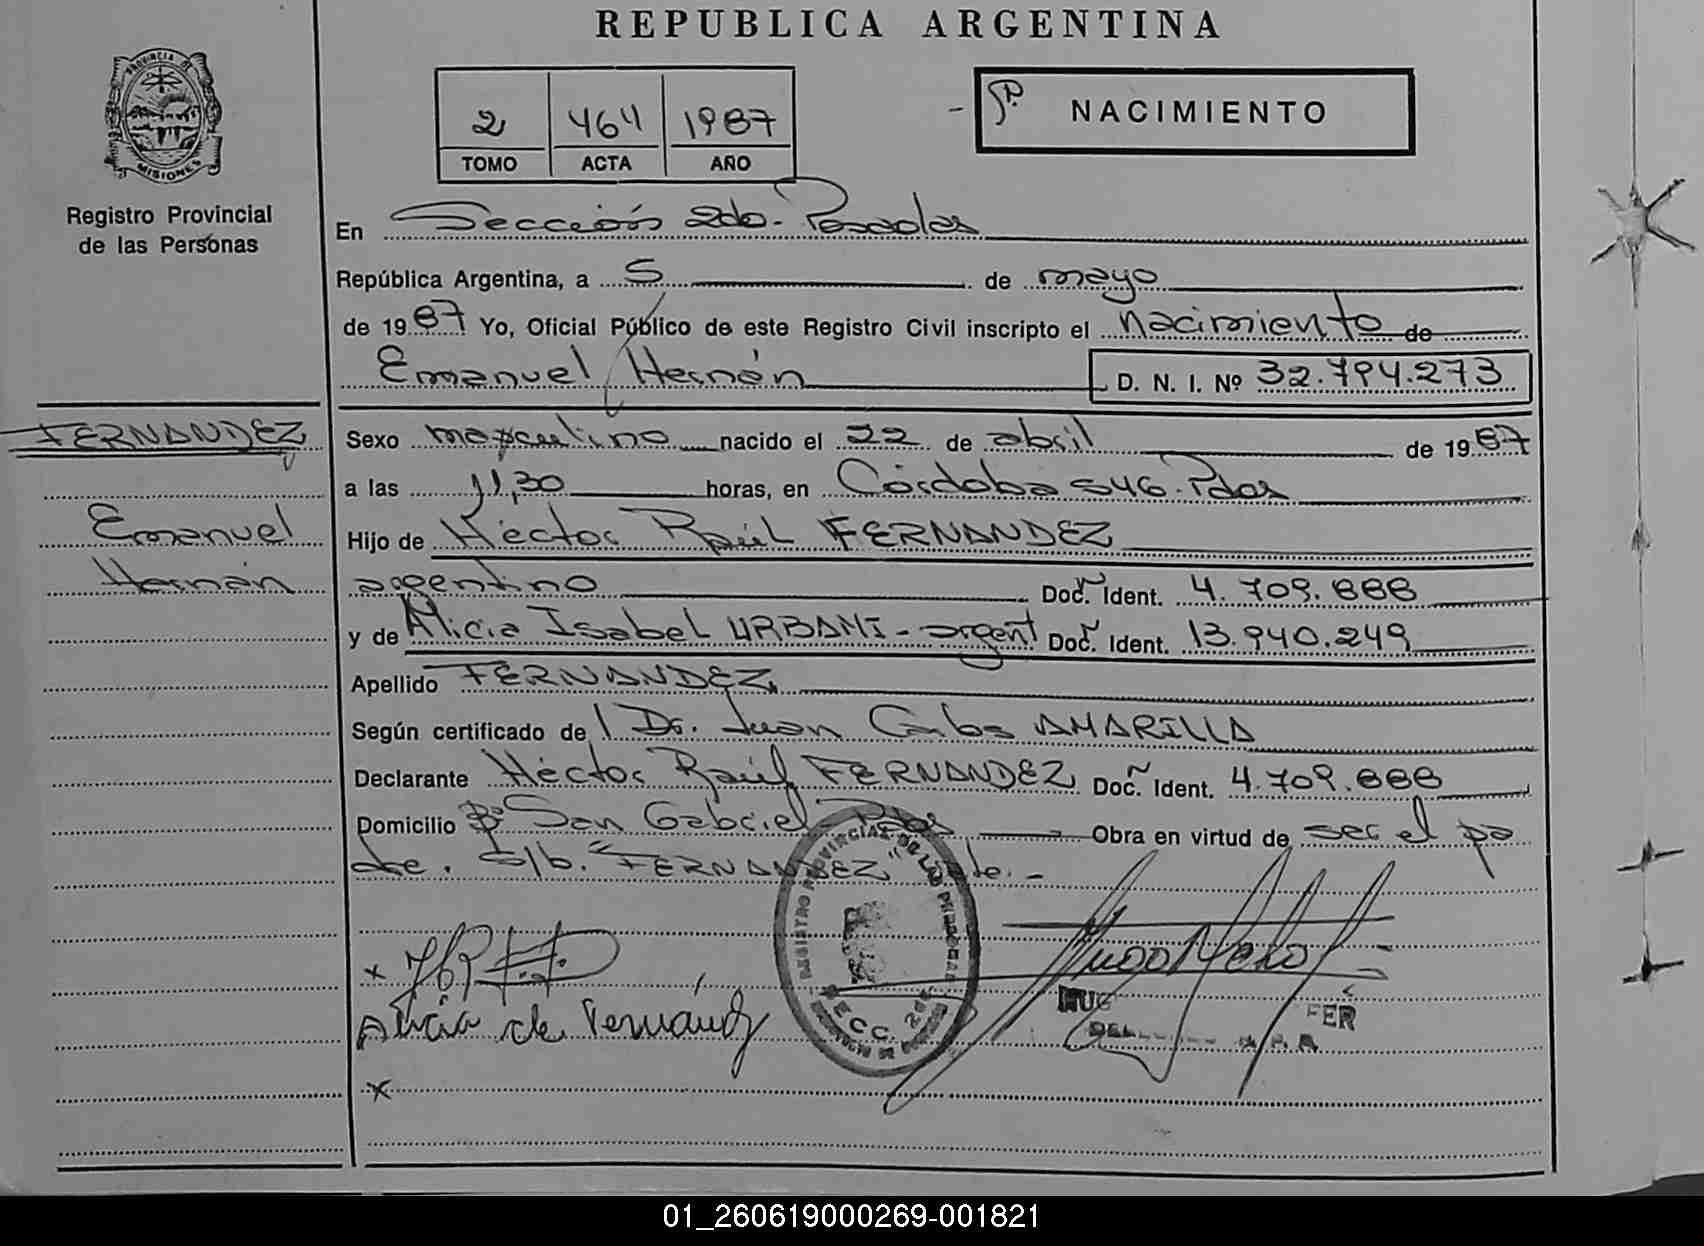 REPUBLICA ARGENTINA
PROVINCIA DE
MISIONES
Registro Provincial
de las Personas
2 464 1987
TOMO ACTA AÑO
NACIMIENTO
En Sección 2da. Posadas
República Argentina, a 5 de mayo
de 1987 Yo, Oficial Público de este Registro Civil inscripto el nacimiento de
Emanuel Hernán D. N. I. Nº 32.794.273
FERNANDEZ
Emanuel
Hernán
Sexo masculino nacido el 22 de abril de 1987
a las 11,30 horas, en Córdoba 546. Pdas
Hijo de Héctor Raúl FERNANDEZ
argentino Doc. Ident. 4.709.888
y de Alicia Isabel URBANI - argent Doc. Ident. 13.940.249
Apellido FERNANDEZ
Según certificado de Dr. Juan Carlos AMARILLA
Declarante Héctor Raúl FERNANDEZ Doc. Ident. 4.709.888
Domicilio Bº San Gabriel Pdas Obra en virtud de ser el pa
dre. S/b. "FERNANDEZ" vale. -
REGISTRO PROVINCIAL DE LAS PERSONAS
SECC. 2da
x
Alicia de Fernández
HUG FER
x
01_260619000269-001821